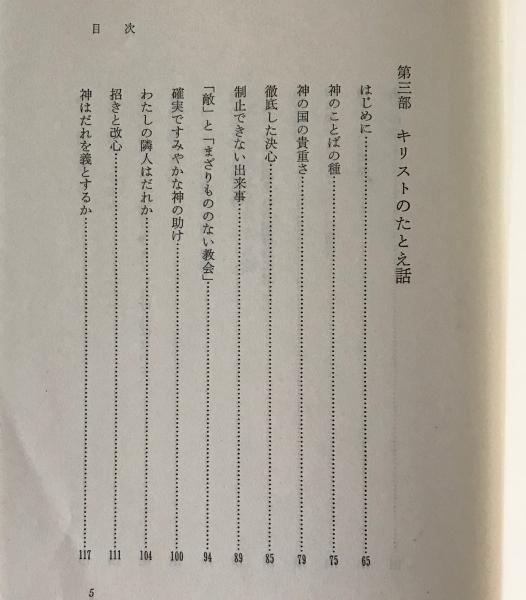 目次
第三部 キリストのたとえ話
はじめに……65
神のことばの種……75
神の国の貴重さ……79
徹底した決心……85
制止できない出来事……89
「敵」と「まざりもののない教会」……94
確実ですみやかな神の助け……100
わたしの隣人はだれか……104
招きと改心……111
神はだれを義とするか……117
5